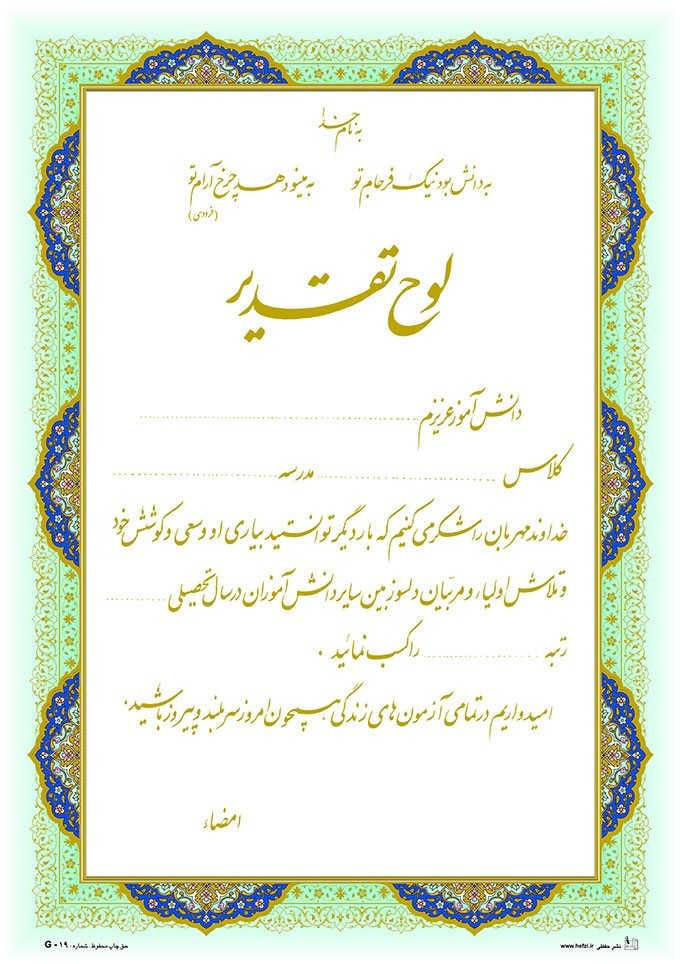 به نام خدا
به دانش بود نیک فرجام تو به مینو دهد چرخ آرام تو
(فردوسی)
لوح تقدیر
دانش آموز عزیزم ........................
کلاس ........................ مدرسه ........................
خداوند مهربان را شکر می کنیم که بار دیگر توانستید بیاری او وسعی و کوشش خود
و تلاش اولیاء و مربّیان دلسوز بین سایر دانش آموزان در سال تحصیلی ............
رتبه ........................ را کسب نمائید .
امیدواریم در تمامی آزمون های زندگی همچون امروز سربلند و پیروز باشید.
امضاء
نشر حفظی www.hefzi.ir
حق چاپ محفوظ. شماره: G - ۱۹